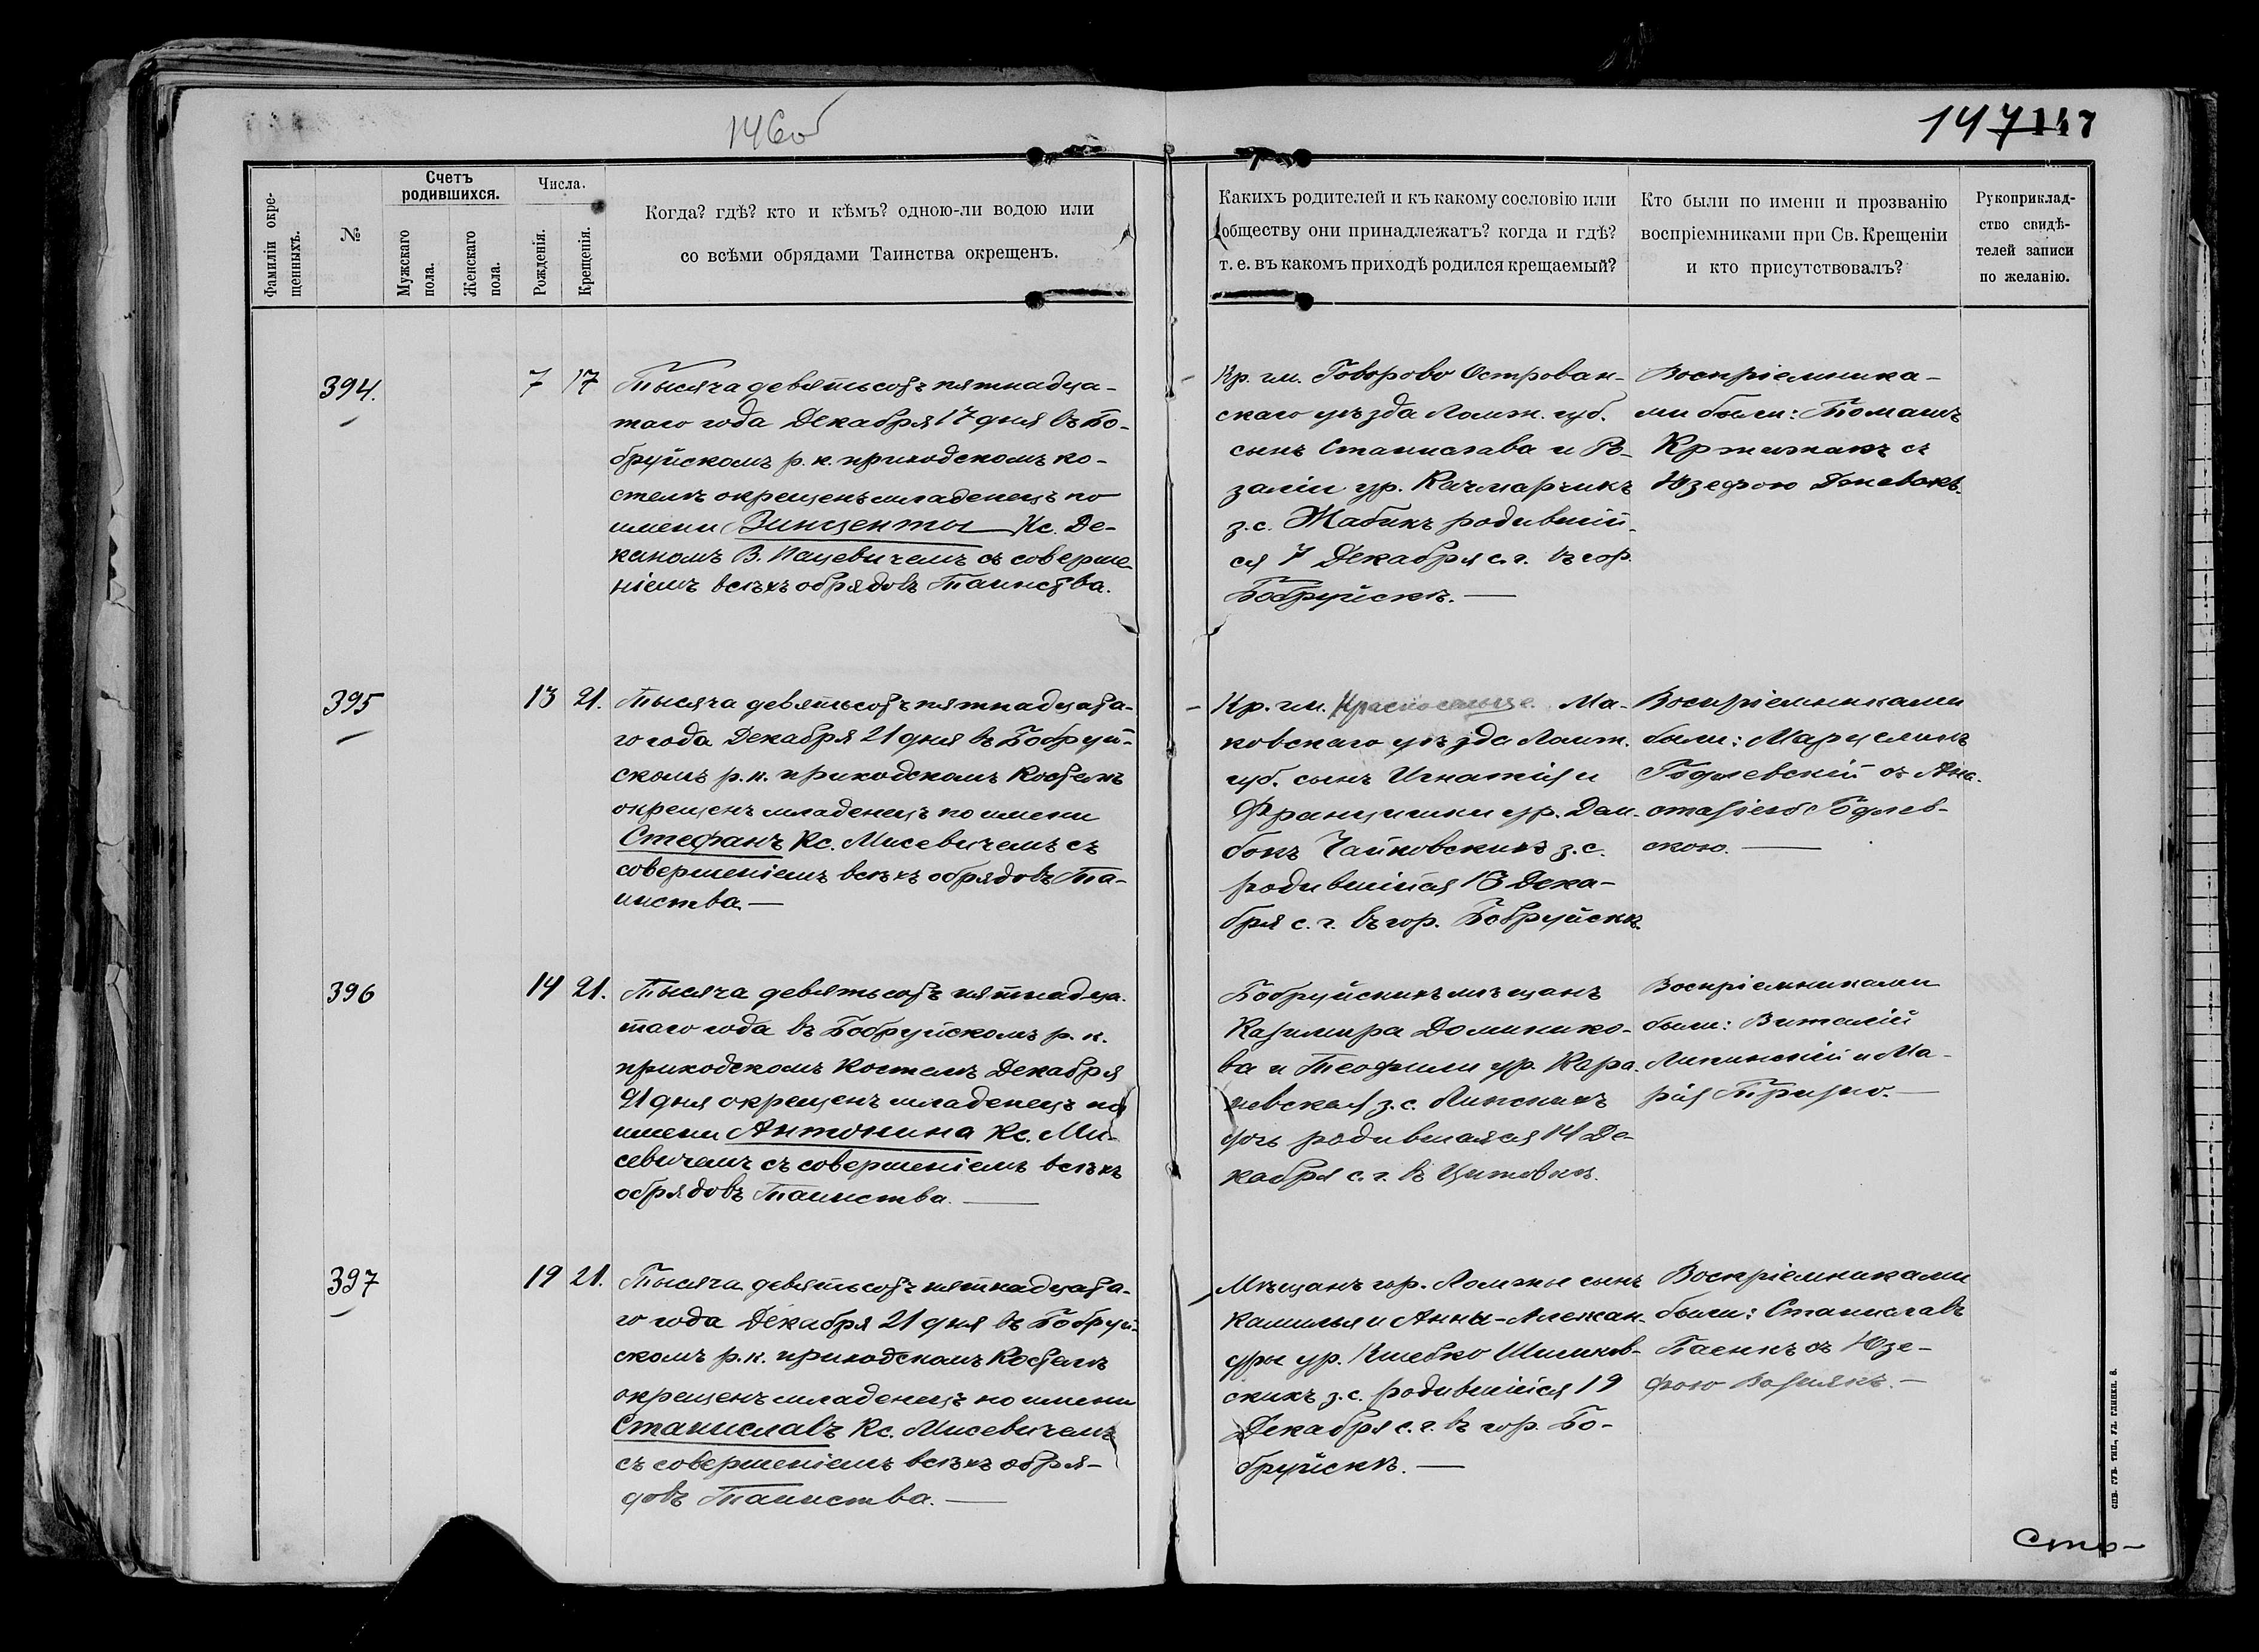 146об
147 147
Фамиліи окре-
щенныхъ.
№
Счетъ
родившихся.
Мужскаго
пола.
Женскаго
пола.
Числа.
Рожденія.
Крещенія.
Когда? гдѣ? кто и кѣмъ? одною-ли водою или
со всѣми обрядами Таинства окрещенъ.
Какихъ родителей и къ какому сословію или
обществу они принадлежатъ? когда и гдѣ?
т. е. въ какомъ приходѣ родился крещаемый?
Кто были по имени и прозванію
воспріемниками при Св. Крещеніи
и кто присутствовалъ?
Рукоприклад-
ство свидѣ-
телей записи
по желанію.
394.
7 17
Тысяча девятьсотъ пятнадца-
таго года Декабря 17 дня въ Бо-
бруйскомъ р. к. приходскомъ ко-
стелѣ окрещенъ младенецъ по
имени Винценты Кс. Де-
каномъ В. Пацевичемъ съ соверше
ніемъ всѣхъ обрядовъ Таинства.
Кр. гм. Говорово Острован-
скаго уѣзда Ломж. губ.
сынъ Станислава и Ро-
заліи ур. Качмарчикъ
з. с. Жабикъ родившій-
ся 7 Декабря с. г. въ гор.
Бобруйскѣ. —
Воспріемника-
ми были: Томашъ
Кржижакъ съ
Юзефою
395
13 21.
Тысяча девятьсотъ пятнадцата-
го года Декабря 21 дня въ Бобруй-
скомъ р. к. приходскомъ Костелѣ
окрещенъ младенецъ по имени
Стефанъ Кс. Мисевичемъ съ
совершеніемъ всѣхъ обрядовъ Та-
инства —
Кр. гм. Красносельце Ма-
ковскаго уѣзда Ломж.
губ. сынъ Игнатія и
Францишки ур. Дем-
бокъ Чайковскихъ з. с.
родившійся 13 Дека-
бря с. г. въ гор. Бобруйскѣ.
Воспріемниками
были: Марцелинъ
Годлевскій съ Ана-
стасіею Годлев-
скою. —
396
14 21.
Тысяча девятьсотъ пятнадца-
таго года въ Бобруйскомъ р. к.
приходскомъ Костелѣ Декабря
21 дня окрещенъ младенецъ по
имени Антонина Кс. Ми-
севичемъ съ совершеніемъ всѣхъ
обрядовъ Таинства. —
Бобруйскихъ мѣщанъ
Казимира Доминико-
ва и Теофили ур.
з. с. Липскихъ
дочь родившаяся 14 Де-
кабря с. г. въ
Воспріемниками
были: Виталій
и Ма-
рія
397
19 21.
Тысяча девятьсотъ пятнадцата-
го года Декабря 21 дня въ Бобруй-
скомъ р. к. приходскомъ Костелѣ
окрещенъ младенецъ по имени
Станиславъ Кс. Мисевичемъ
съ совершеніемъ всѣхъ обря-
довъ Таинства. —
Мѣщанъ гор. Ломжы сынъ
Камилья и Анны-Алексан-
дры ур.
скихъ з. с. родившійся 19
Декабря с. г. въ гор. Бо-
бруйскѣ. —
Воспріемниками
были: Станиславъ
съ Юзе-
фою
Сто-
СПБ. ГУБ. ТИП., УЛ. ГЛИНКИ, 6.